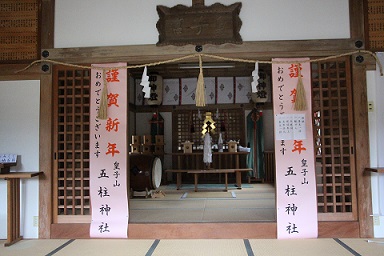 謹賀新年
おめでとうございます
皇子山
五柱神社
謹賀
年
おめでとう
ます
皇子山
五柱神社